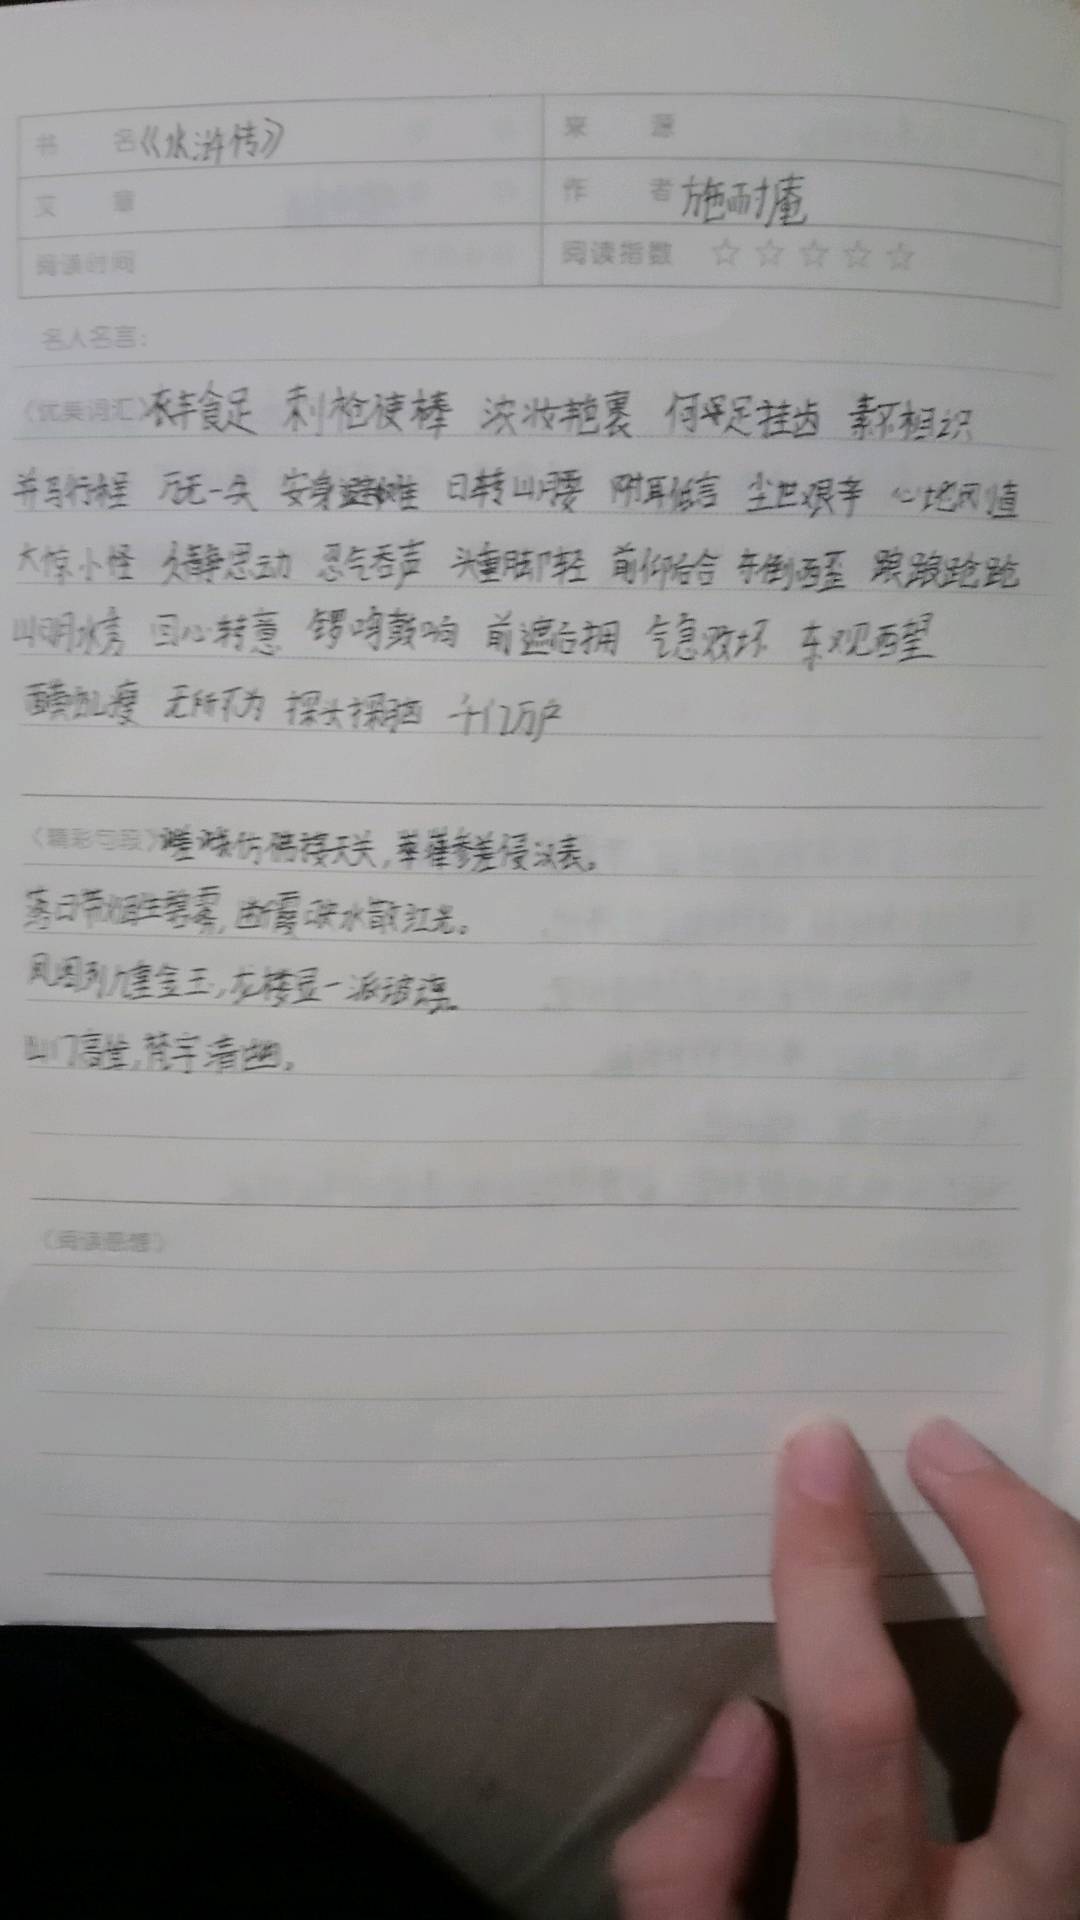 书 名《水浒传》 来 源
文 章 作 者 施耐庵
阅读时间 阅读指数 ☆☆☆☆☆
名人名言:
〈优美词汇〉衣丰食足 刺枪使棒 浓妆艳裹 何足挂齿 素不相识
并马行程 万无一失 安身避难 日转山腰 附耳低言 尘世艰辛 心地
大惊小怪 久静思动 忍气吞声 头重脚轻 前仰后合 东倒西歪 踉踉跄跄
山明水秀 回心转意 锣鸣鼓响 前遮后拥 气急败坏 东观西望
面黄肌瘦 无所不为 探头探脑 千门万户
〈精彩句段〉嵯峨仿佛接天关,崒嵂参差侵汉表。
落日带烟生碧雾,断霞映水散红光。
凤阁列九重金玉,龙楼显一派玻璃。
山门高耸,梵宇清幽。
〈阅读感想〉